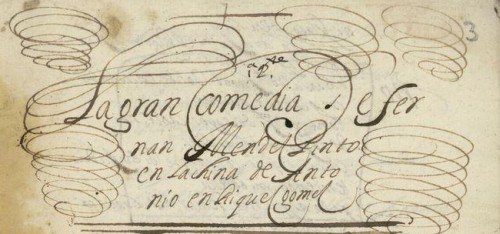 3
1ª pte
La gran comedia de fer
nan Mendes Pinto
en la china de Anto
nio enrriques gomes